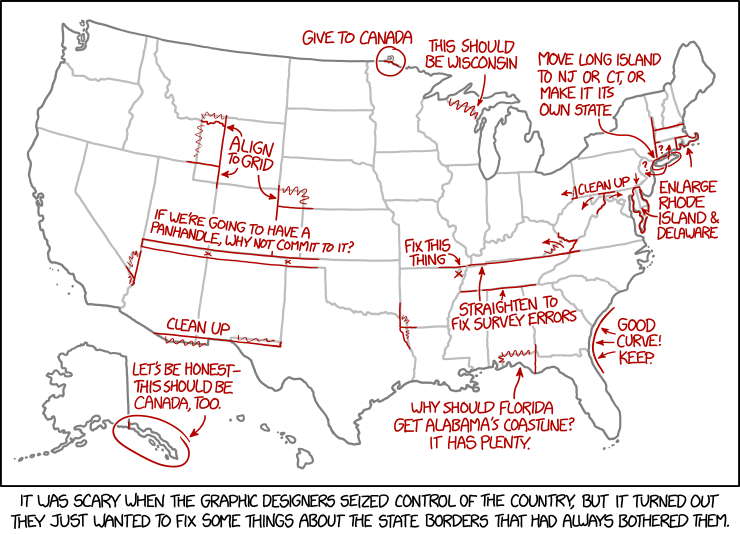 GIVE TO CANADA
THIS SHOULD
BE WISCONSIN
MOVE LONG ISLAND
TO NJ OR CT, OR
MAKE IT ITS
OWN STATE
ALIGN
TO GRID
?
?
CLEAN UP
ENLARGE
RHODE
ISLAND &
DELAWARE
IF WE'RE GOING TO HAVE A
PANHANDLE, WHY NOT COMMIT TO IT?
FIX THIS
THING
STRAIGHTEN TO
FIX SURVEY ERRORS
CLEAN UP
GOOD
CURVE!
KEEP.
LET'S BE HONEST—
THIS SHOULD BE
CANADA, TOO.
WHY SHOULD FLORIDA
GET ALABAMA'S COASTLINE?
IT HAS PLENTY.
IT WAS SCARY WHEN THE GRAPHIC DESIGNERS SEIZED CONTROL OF THE COUNTRY, BUT IT TURNED OUT
THEY JUST WANTED TO FIX SOME THINGS ABOUT THE STATE BORDERS THAT HAD ALWAYS BOTHERED THEM.